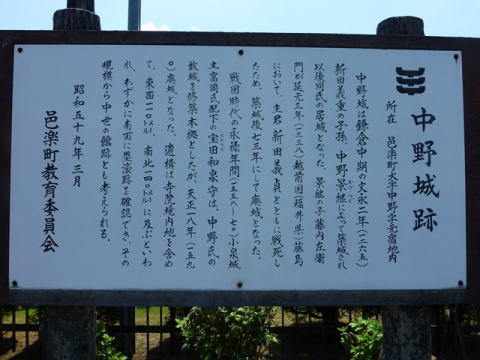 中野城跡
所在 邑楽町大字中野字元宿地内
中野城は鎌倉中期の文永二年(一二六五)
新田義重の子孫、中野景継によって築城され
以後同氏の居城となった。景継の子藤内左衛
門が延元三年(一三三八)越前国(福井県)藤島
において、主君新田義貞とともに戦死し
たため、築城後七三年にして廃城となった。
戦国時代の永禄年間(一五五八〜七〇)小泉城
主富岡氏配下の宝田和泉守は、中野氏の
故城を修築本拠としたが、天正一八年(一五九
〇)廃城となった。遺構は寺院境内地を含め
て、東西一一〇メートル、南北一四〇メートルに及ぶといわ
れ、わずかに南面に塁濠跡を確認でき、その
規模から中世の館跡とも考えられる。
昭和五十九年三月
邑楽町教育委員会